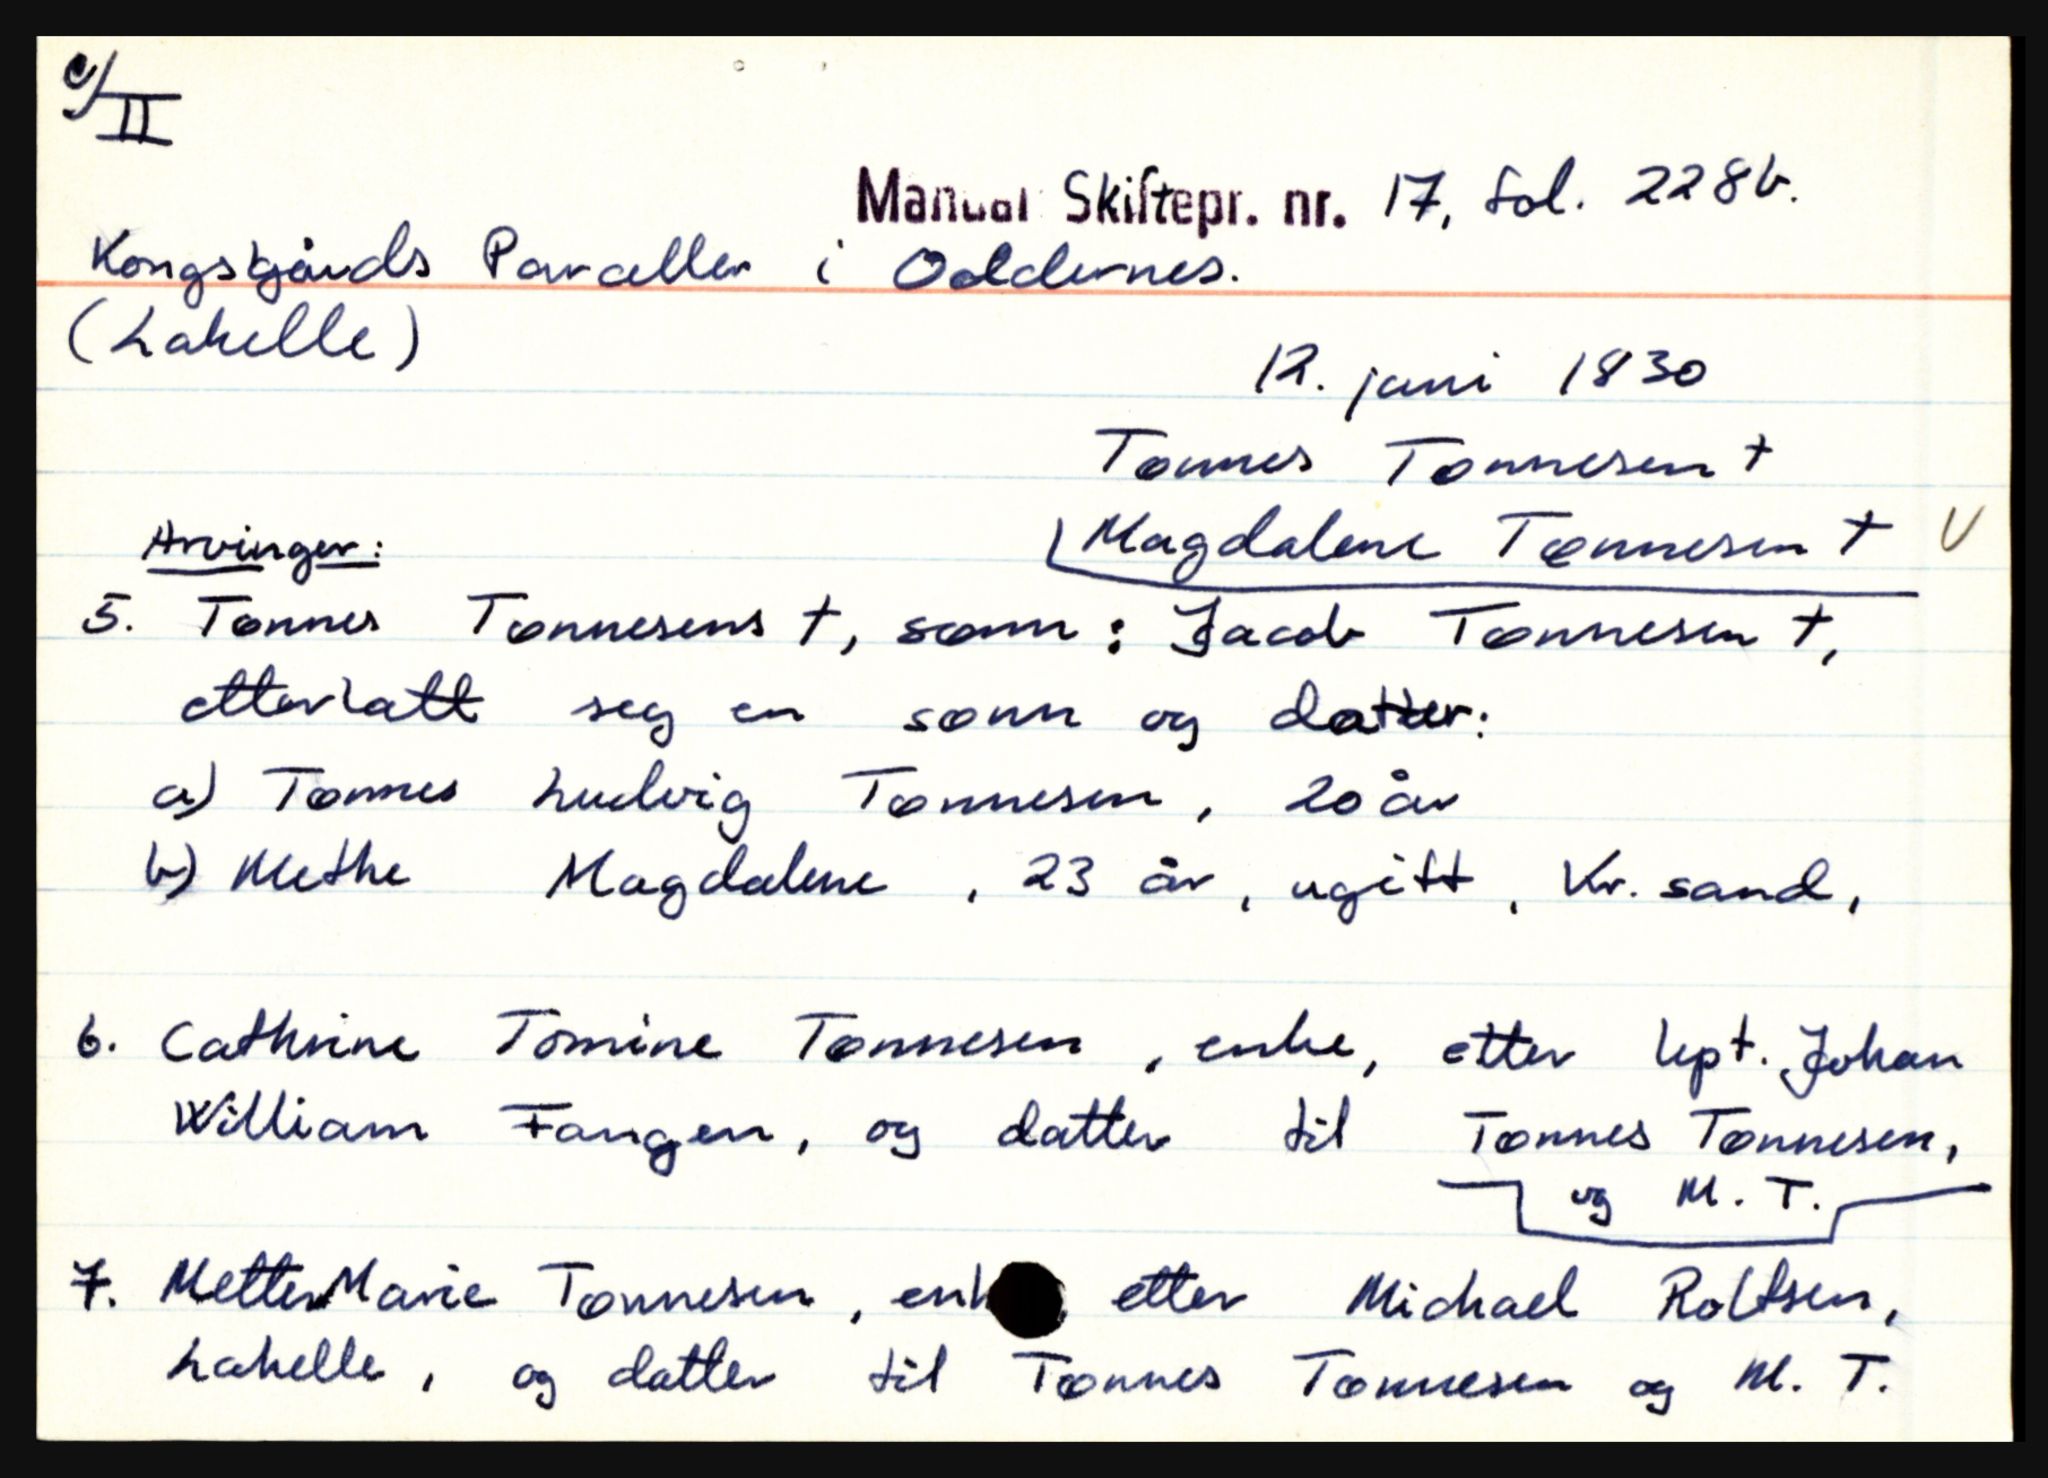 c/II
Manual Skiftepr. nr. 17, fol. 228b.
Kongsgårds Parceller i Oddernes.
(Lahelle)
12. juni 1830
Tønnes Tønnesen †
Magdalene Tønnesen † V
Arvinger:
5. Tønnes Tønnesens †, sønn: Jacob Tønnesen †,
etterlatt seg en sønn og datter:
a) Tønnes Ludvig Tønnesen, 20 år
b) Methe Magdalene, 23 år, ugift, Kr. sand,
6. Cathrine Tomine Tønnesen, enke, etter kpt. Johan
William Fangen, og datter til Tønnes Tønnesen,
og M. T.
7. Mette Marie Tønnesen, enk, etter Michael Roltsen,
Lahelle, og datter til Tønnes Tønnesen og M. T.